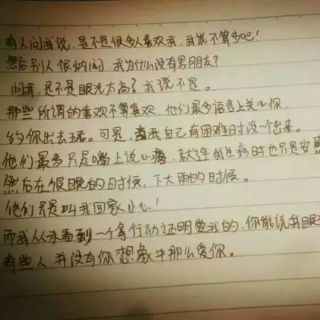 有人问我说，是不是很多人喜欢我，我说不算多吧！
然后别人很纳闷，我为什么没有男朋友？
问我，是不是眼光太高了我说不是。
那些所谓的喜欢不算喜欢，他们最多语言上关心你
约你出去玩。可是，我自己有困难时没一个出来。
他们最多只是嘴上说心疼，就连我生病时也只是安慰
然后在很晚的时候，下大雨的时候。
他们只是叫我回家小心！
而我从未看到一个拿行动证明爱我的，你能说我眼
有些人，并没有你想象中那么爱你。